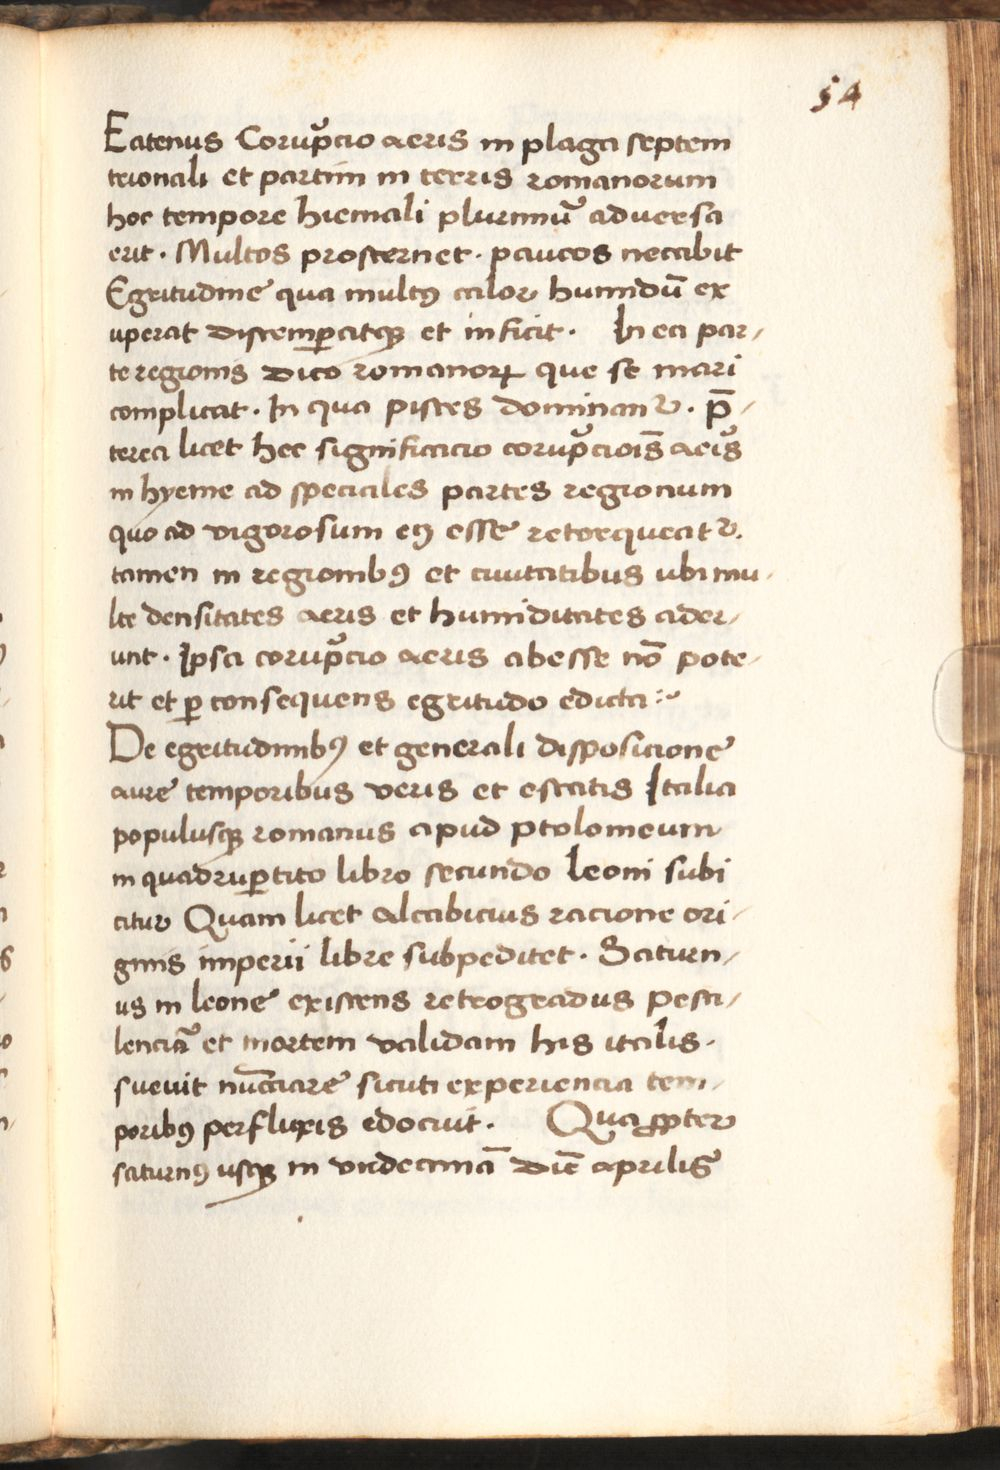 54
Eatenus Corup̃cio aeris in plaga septem
trionali et partim in terris romanorum
hoc tempore hiemali plurimũ adversa
erit · Multos prosternet · paucos necabit
Egritudine qua multꝰ calor humidũ ex
uperat distemꝑatqꝫ et inficit · In ea par/
te regionis dico romanoꝝ que se mari
complicat · In qua pisces dominant᷑ · p̄/
terea licet hec significacio corup̃ciois̄ aeis̃
in hyeme ad speciales partes regionum
quo ad vigorosum eiꝰ esse retorqueat᷑.
tamen in regionibꝰ et civitatibus ubi mu/
lte densitates aeris et humiditates ader/
unt · Ipsa corup̃cio aeris abesse nō pote/
rit et ꝑ consequens egritudo edicta :~
De egritudinibꝰ et generali disposicione
aure temporibus veris et estatis Italia
populusqꝫ romanus apud ptolomeum
in quadruꝑtito libro secundo leoni subi
citur Quam licet alcabicius racione ori/
ginis imperii libre subpeditet · Saturn/
us in leone existens retrogradus pesti/
lenciã et mortem validam his italis ·
suevit nūcciare sicuti experiencia tem/
poribꝰ perfluxis edocuit · Quaꝓpter
saturnꝰ usqꝫ in vndecimā diē aprilis